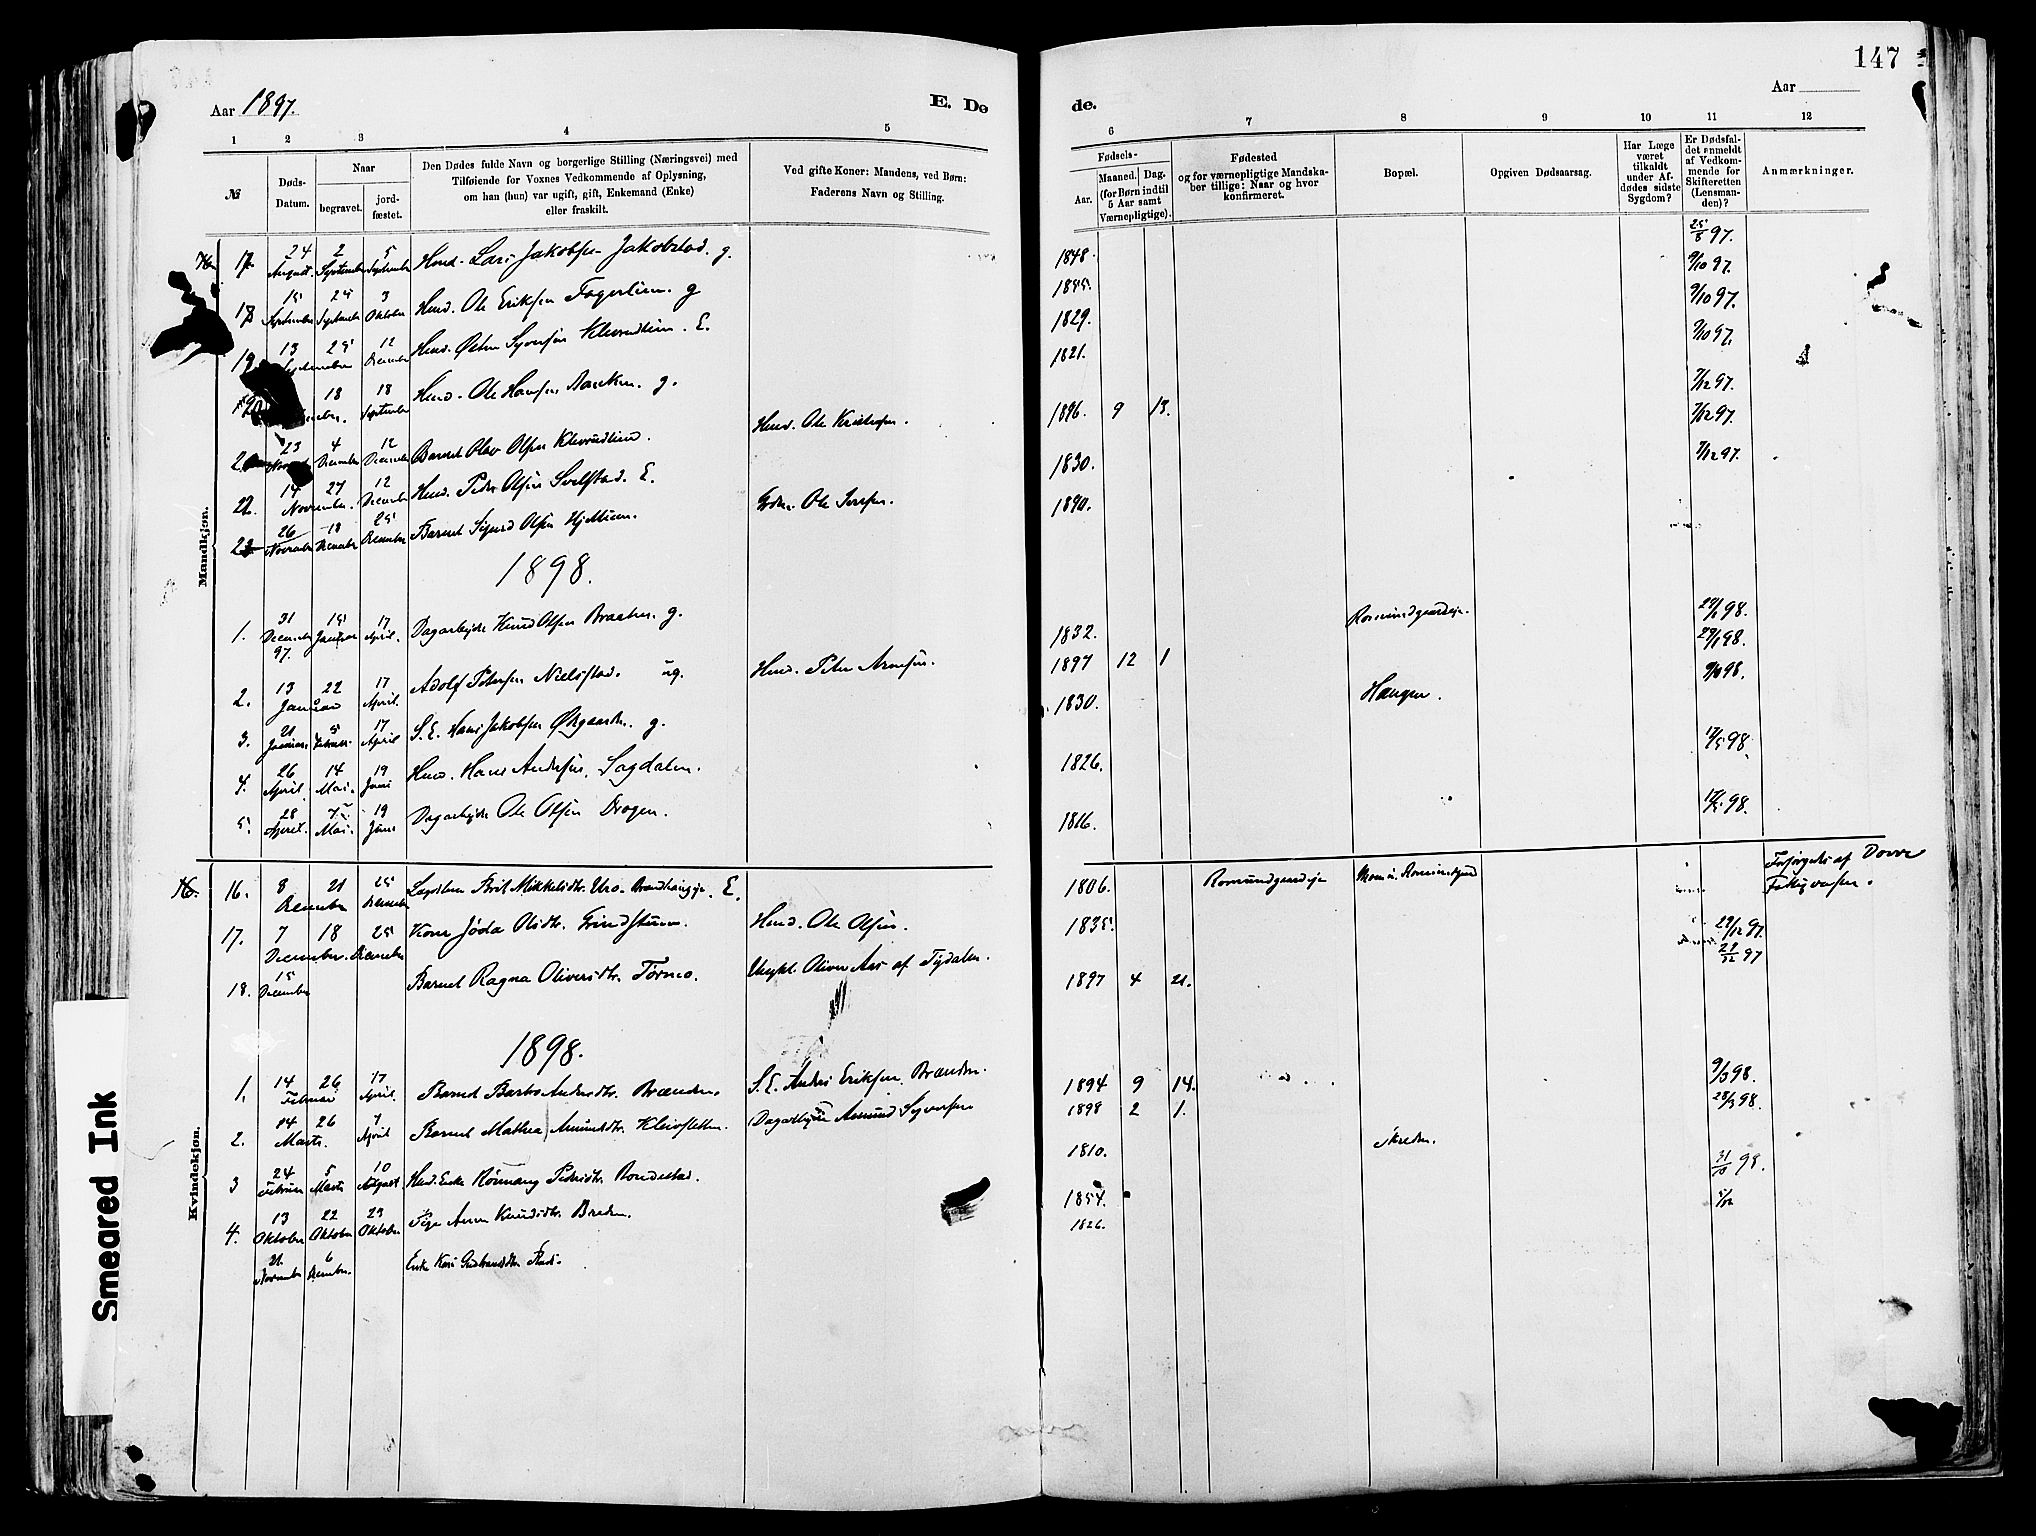 147
Aar 1897. E. Dø
de. Aar
1 2 3 4 5
6 7 8 9 10 11 12
№
Døds-Datum.
Naar
begravet.
jord-fæstet.
Den Dødes fulde Navn og borgerlige Stilling (Næringsvei) med
Tilføiende for Voxnes Vedkommende af Oplysning,
om han (hun) var ugift, gift, Enkemand (Enke)
eller fraskilt.
Ved gifte Koner: Mandens, ved Børn:
Faderens Navn og Stilling.
Fødsels-
Aar.
Maaned. Dag.
(for Børn indtil
5 Aar samt
Værnepligtige).
Fødested
og for værnepligtige Mandska-
ber tillige: Naar og hvor
konfirmeret.
Bopæl.
Opgiven Dødsaarsag.
Har Læge
været
tilkaldt
under Af-
dødes sidste
Sygdom?
Er Dødsfal-
det anmeldt
af Vedkom-
mende for
Skifteretten
(Lensman-
den)?
Anmærkninger.
Mandkjøn.
17. 24 August. 2 September 5 September Huud. Lars Jakobsen Jakobstad. g. 1848. 25/8 97.
18 15 September 25 September 3 Oktober Huud. Ole Eriksen Fagerlien. g 1845. 9/10 97.
19. 13 September 25 12 December Huud. Østen Syversen Klevrudlien. E. 1829. 9/10 97.
20 18 18 September Huud. Ole Hansen Aaseken. g. 1821. 9/10 97.
23 November 4 December 12 December Barnet Olav Olsen Klevrudlien. Huud. Ole Kristofersen. 1896. 9 13. 7/12 97.
22. 14 November. 27 12 December Huud. Peder Olsen Svelstad. E. 1830. 7/12 97.
23 26 November 18 December 25 December Barnet Sigurd Olsen Hjellum. Grdm. Ole Iversen. 1890. 7/12 97.
1898.
1. 31 December 97. 15 Januar 17 April. Dagarbejder Knud Olsen Braaten. g. 1832. Romundgaardeje. 29/1 98.
2. 13 Januar 22 17 April. Adolf Petersen Nielsstad. ug. Huud. Peter Arnesen. 1897 12 1 29/1 98.
3. 21 Januar 5 Februar 17 April S. E. Hans Jakobsen Øygaarden. g. 1830. Haugen.
4. 26 April. 14 Mai. 19 Juni Huud. Hans Andersen Sagdalen. 1826. 17/5 98.
5. 28 April. 7 Mai. 19 Juni Dagarbejder Ole Olsen Drogen. 1816. 17/5 98.
Kvindekjøn.
16. 16. 8 December 21 25 December Lægdslem Brit Mikkelsdtr. E. 1806. Romundgaardeje Forsørgedes af Dovre Fattigvæsen.
17. 7 December. 18 25 December Kone Jøda Olsdtr. Grindstuen. Huud. Ole Olsen. 1835. 29/12 97.
18. 15 December Barnet Ragna Oliversdtr. Tørmo. Ungkl. Oliver af Tydalen. 1897 4 21. 29/12 97
1898.
1. 14 Februar 26 17 April. Barnet Barbro Andersdtr. Brænden. S. E. Anders Eriksen Brænden. 1894 9 14. 9/3 98.
2. 14 Marts. 26 7 April Barnet Mathea Amundsdtr. Kleivsletten. Dagarbejder Amund Syversen 1898 2 1. 28/3 98.
3 24 Februar 5 Marts 10 August Huud. Enke Rønnaug Pedersdtr. Bondestad. 1810. 31/10 98.
4. 13 Oktober 22 Oktober 23 Oktober Pige Anne Knudsdtr. Breden. 1854.
21. November 6 December. Enke Kari Gudbrandsdtr. 1826.
Smeared Ink